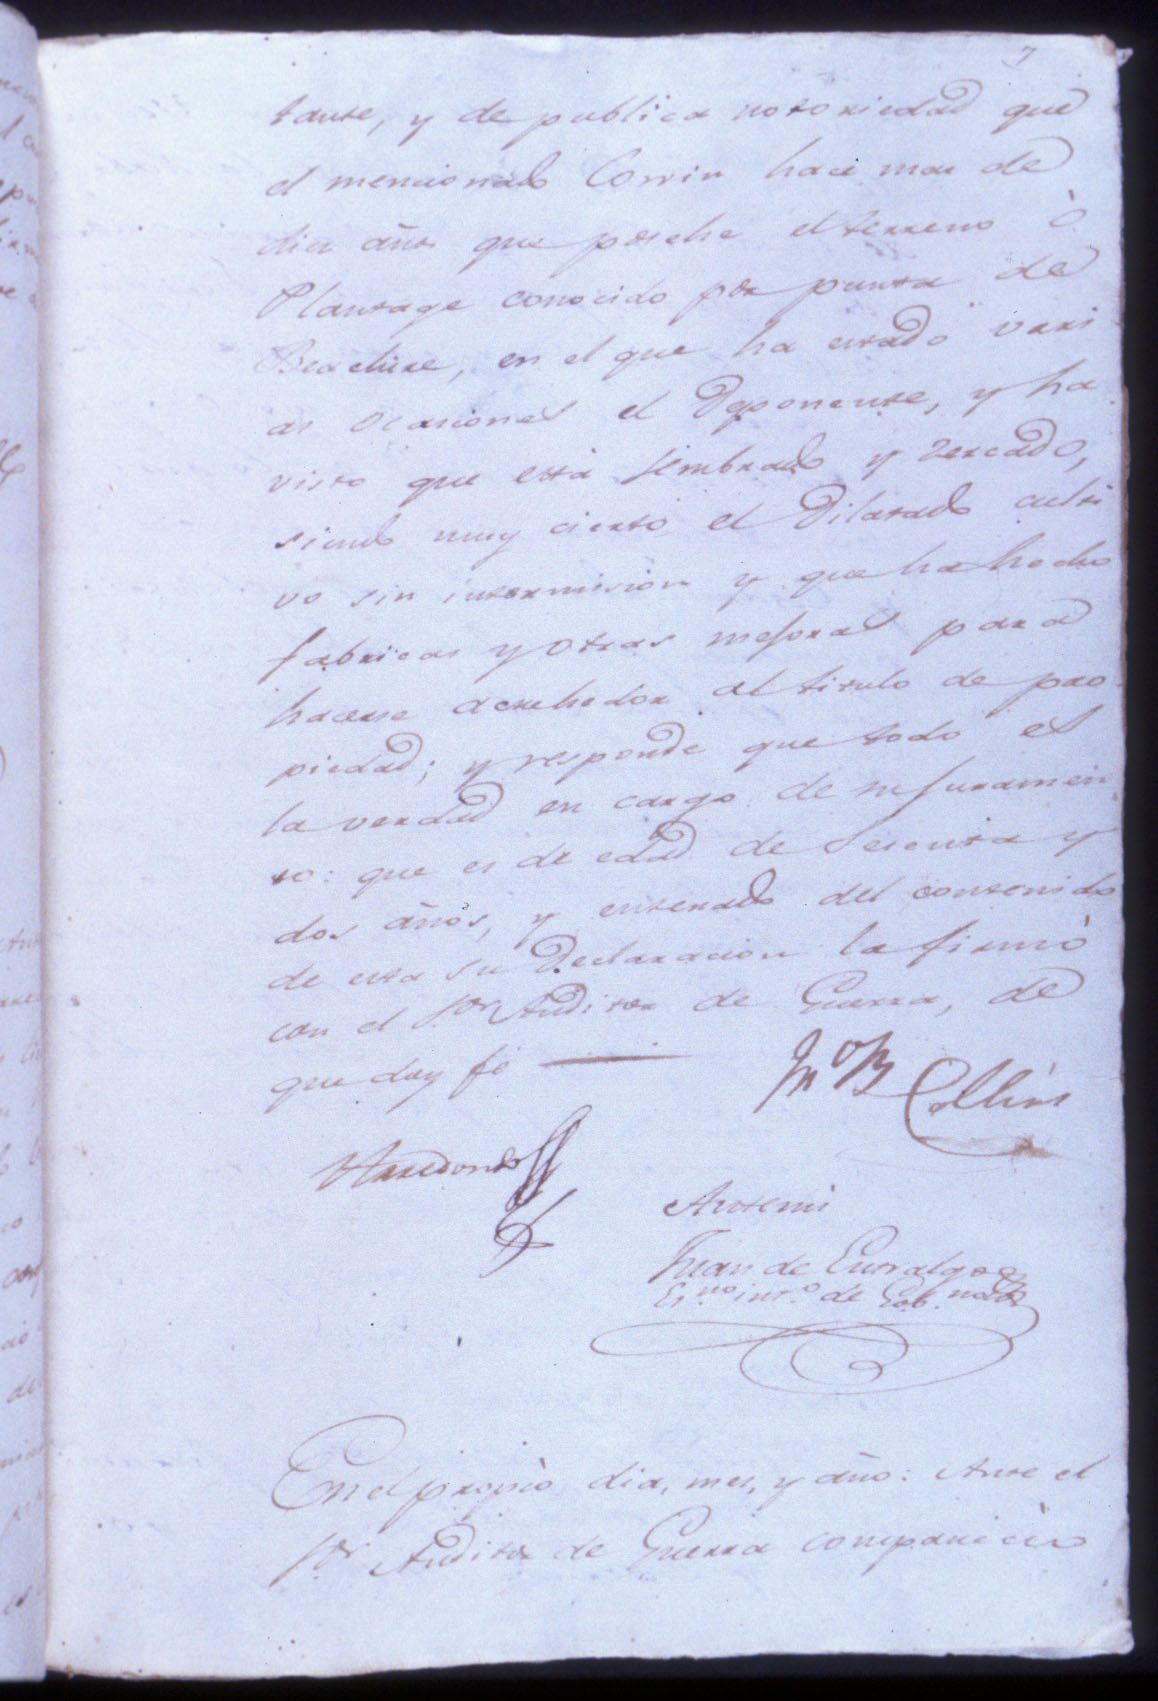 7
tante, y de publica notoriedad que
el mencionado Corvin hace mas de
diez años que poséhe el terreno ò
Plantage conocido por punta de
en el que ha estado vari
as ocasiones el Deponente, y ha
visto que està sembrado y zercado,
siendo muy cierto el dilatado culti
vo sin intermision y que ha hecho
fabricas y otras mejoras para
hacerse acrehedor al titulo de pro
piedad; y responde que todo es
la verdad en cargo de su juramen
to: que es de edad de sesenta y
dos años, y enterado del contenido
de esta su Declaracion la firmò
con el S.or Auditor de Guerra, de
que doy fé
Jn.o B Collins
Arredondo
Antemi
Juan de Entralgo
Es.no int.o de Gob.no
En el propio dia, mes, y año: Ante el
S.or Auditor de Guerra compareciò